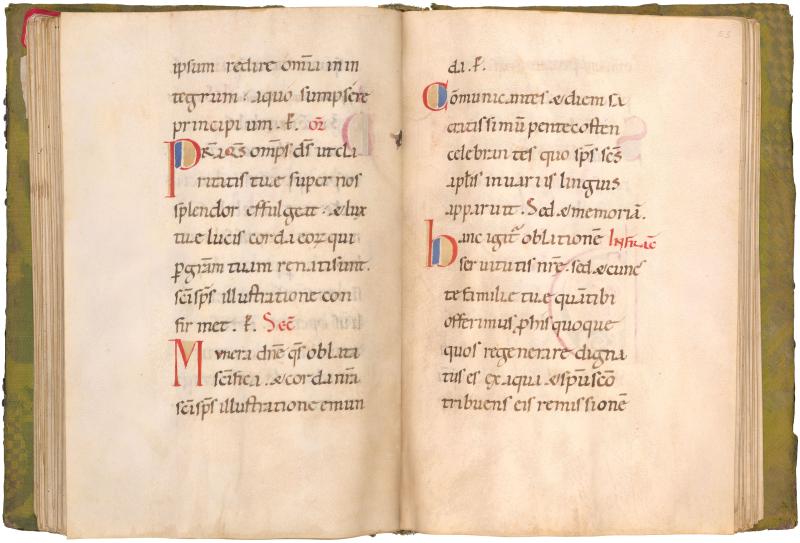 ipsum redire om̄ia in in
tegrum . a quo sumpsere
principium . P̄. oR̄
PR̄a qs̄ om̄ps d̄s ut cla
ritatis tuę super nos
splendor effulgeat . & lux
tuę lucis corda eoꝝ qui
p̱ gr̄am tuam renati sunt .
sc̄i sp̄s illustratione con
firmet . P̄. Sec̄
Munera dn̄e qs̄ oblata
sc̄ifica . & corda nr̄a
sc̄i sp̄s illustratione emun
53
da . P̄.
Cōmunicantes & diem sa
cratissimū pentecosten
celebrantes quo sp̄s sc̄s
ap̄lis in uariis linguis
apparuit . Sed & memoriā .
hanc igit̄ oblationē Infrac̄
seruitutis nr̄e . sed & cunc
te familię tuę quā tibi
offerimus ꝓ his quoque
quos regenerare digna
tus es ex aqua & sp̄u sc̄o
tribuens eis remissionē